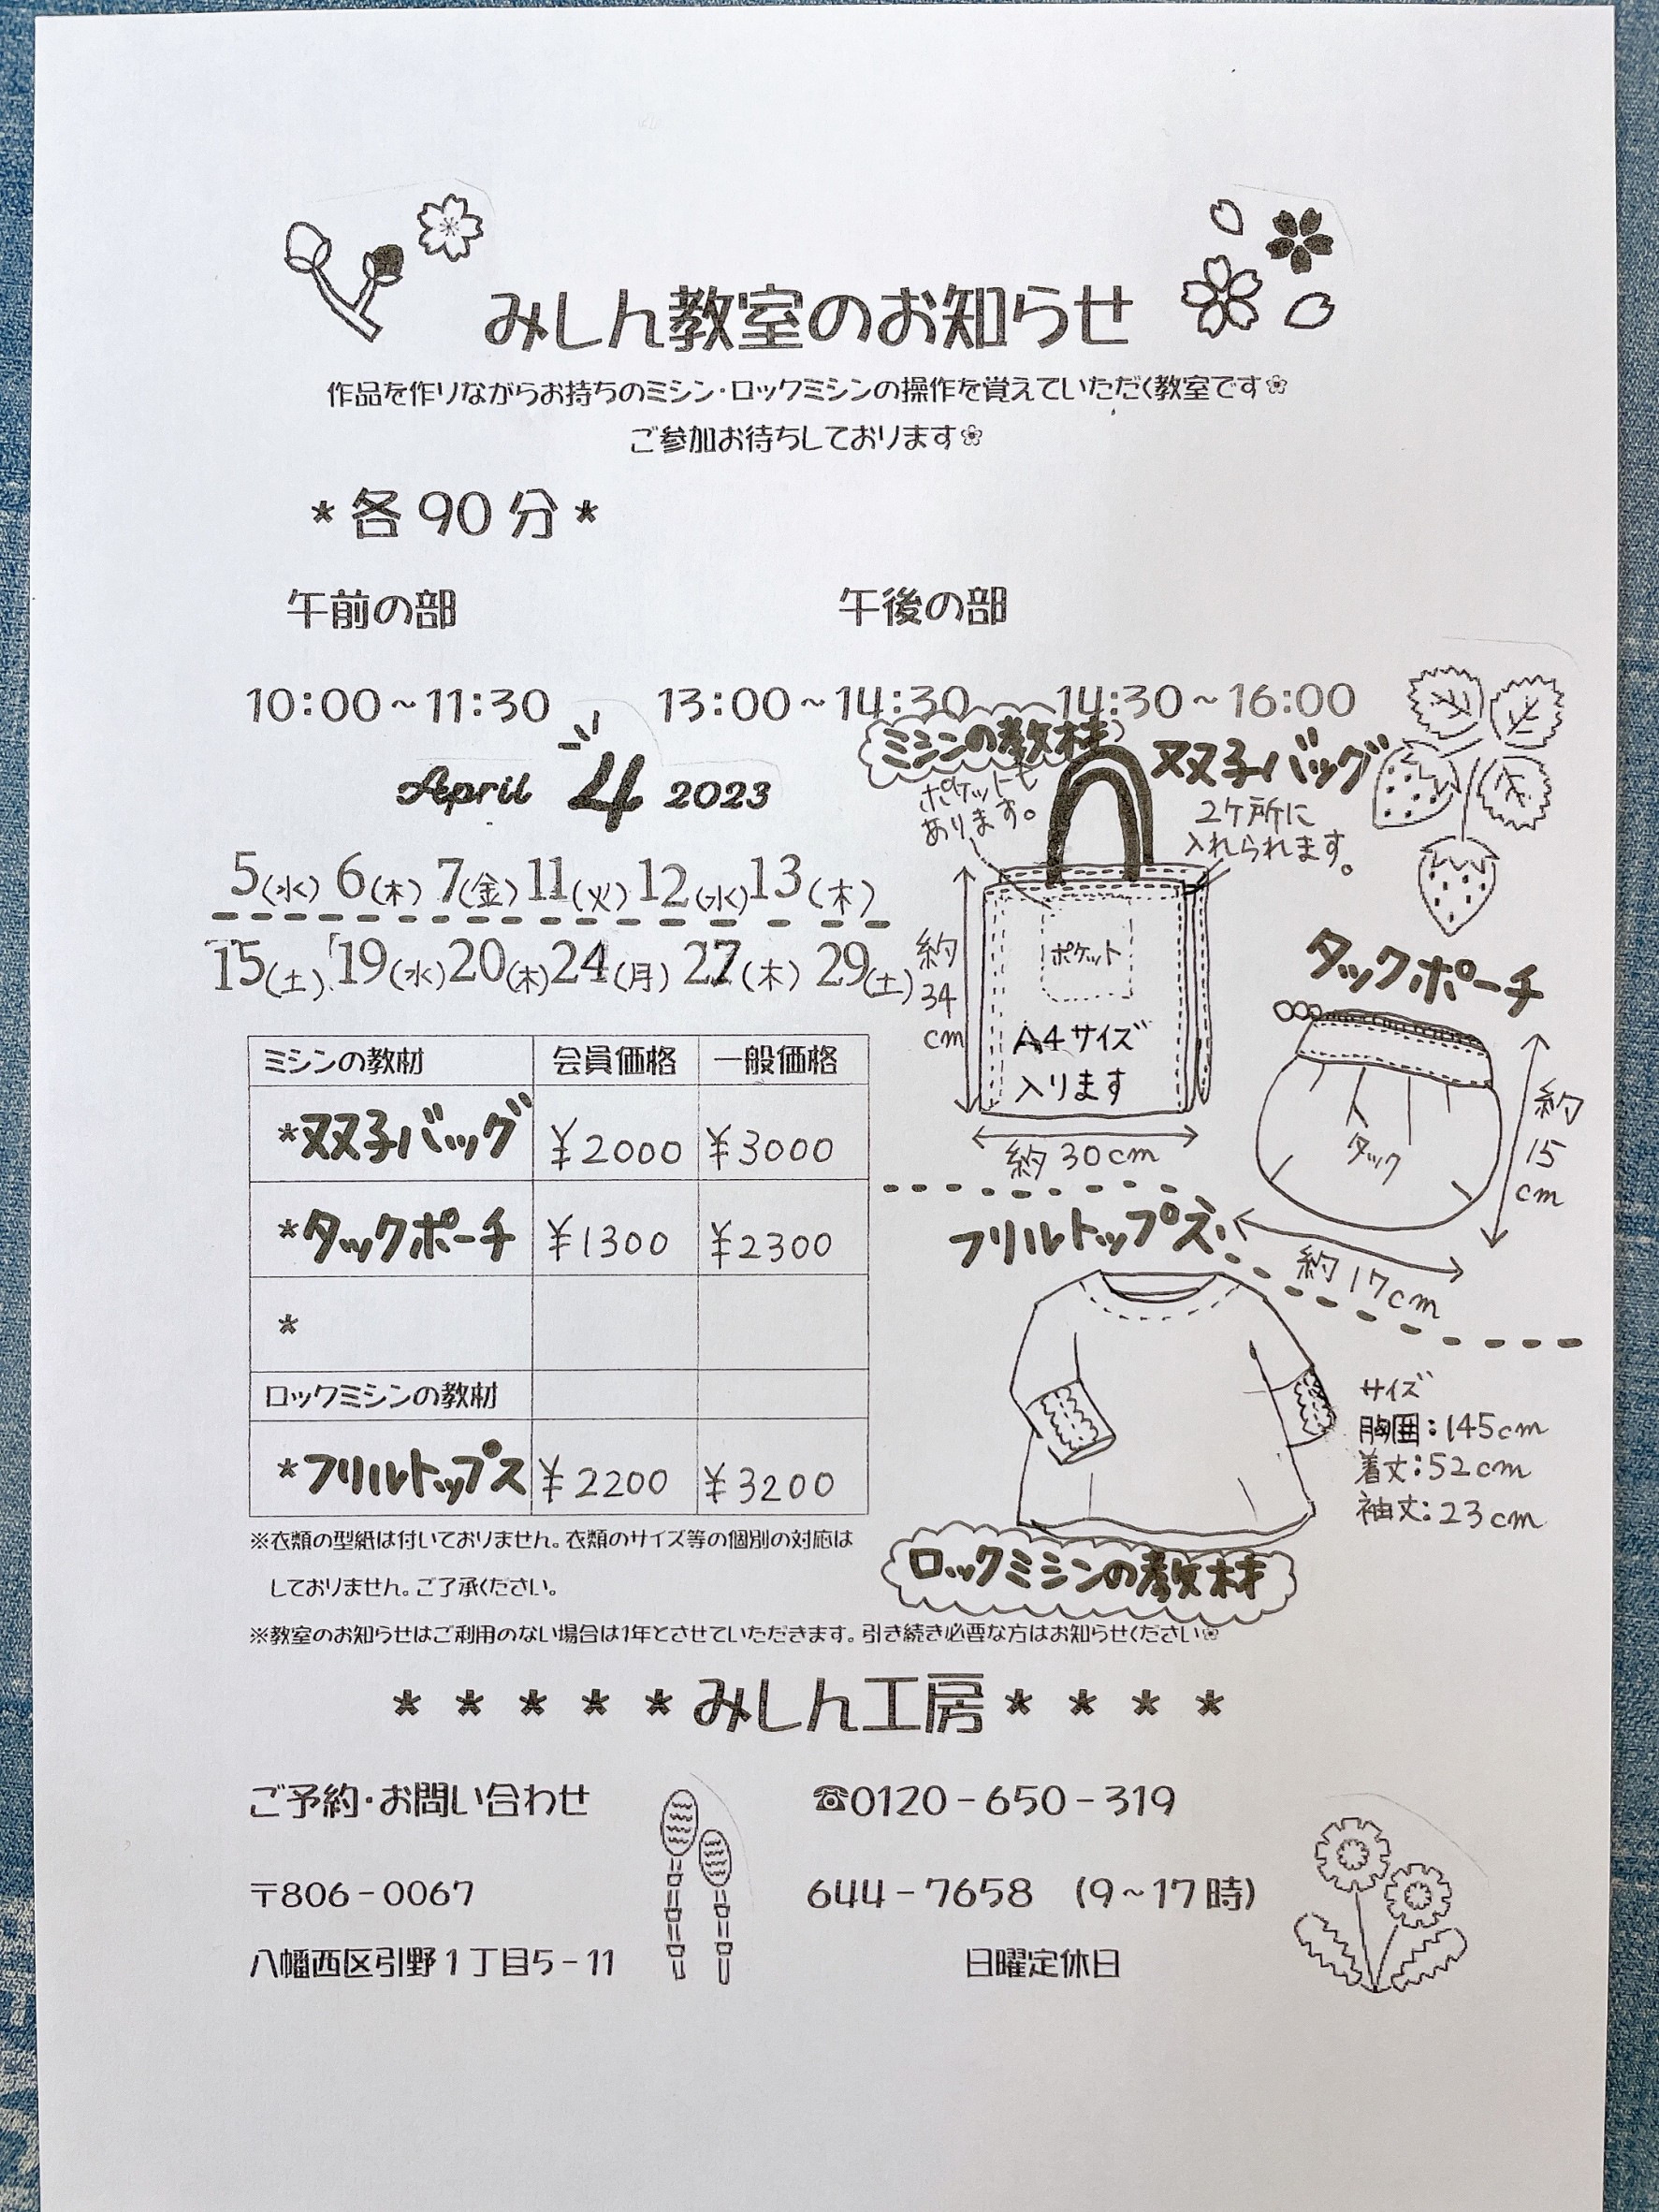 みしん教室のお知らせ
作品を作りながらお持ちのミシン・ロックミシンの操作を覚えていただく教室です❀
ご参加お待ちしております❀
*各90分*
午前の部 午後の部
10:00~11:30 13:00~14:30 14:30~16:00
April 4 2023
5(水) 6(木) 7(金) 11(火) 12(水) 13(木)
15(土) 19(水) 20(木) 24(月) 27(木) 29(土)
ミシンの教材
双子バッグ
ポケットも
あります。
2ケ所に
入れられます。
ポケット
A4サイズ
入ります
約
34
cm
約30cm
タックポーチ
タック
約
15
cm
約17cm
ミシンの教材 会員価格 一般価格
*双子バッグ ¥2000 ¥3000
*タックポーチ ¥1300 ¥2300
*
ロックミシンの教材
*フリルトップス ¥2200 ¥3200
フリルトップス
サイズ
胸囲:145cm
着丈:52cm
袖丈:23cm
ロックミシンの教材
※衣類の型紙は付いておりません。衣類のサイズ等の個別の対応は
しておりません。ご了承ください。
※教室のお知らせはご利用のない場合は1年とさせていただきます。引き続き必要な方はお知らせください❀
* * * * * みしん工房 * * * *
ご予約・お問い合わせ ☎0120-650-319
〒806-0067 644-7658 (9~17時)
八幡西区引野1丁目5-11 日曜定休日